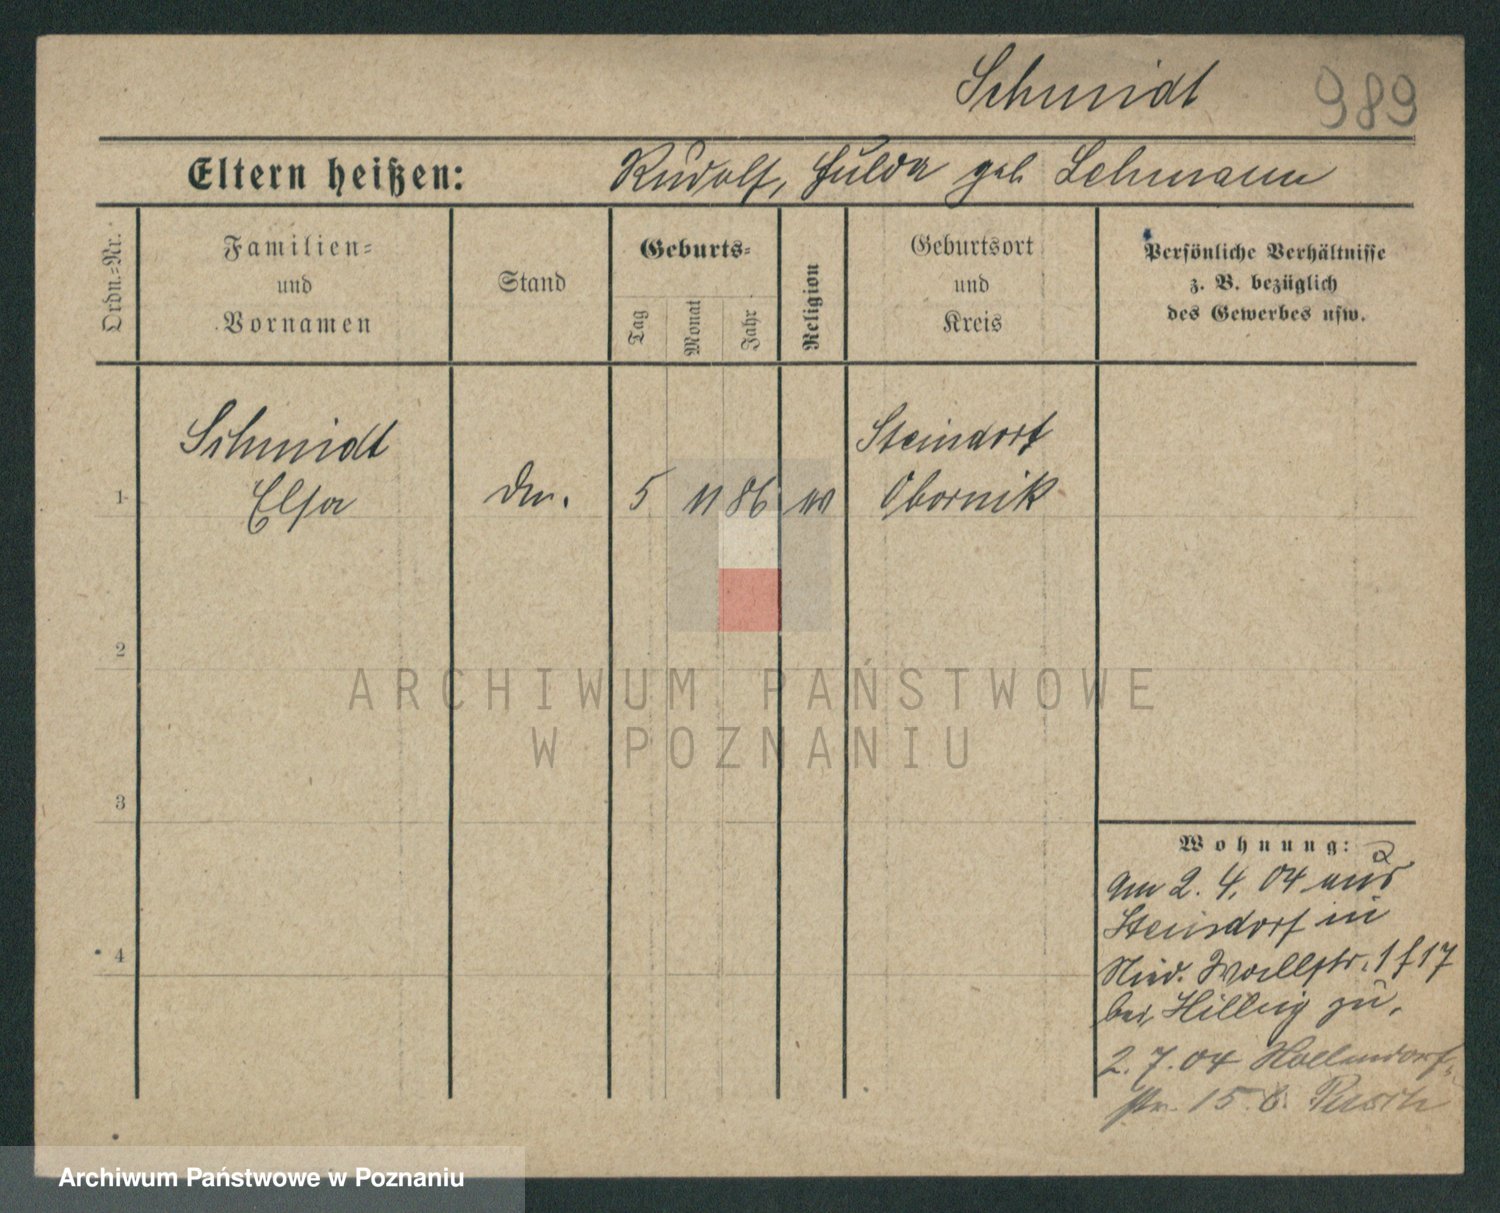 Schmidt 989
Eltern heißen: Rudolf, Hulda geb Lehmann
Ordn.=Nr.
Familien=
und
Vornamen
Stand
Geburts=
Tag
Monat
Jahr
Religion
Geburtsort
und
Kreis
Persönliche Verhältnisse
z. B. bezüglich
des Gewerbes usw.
Schmidt
Elsa
1
5 11 86
Steindorf
Obornik
2
3
4
Wohnung:
am 2. 4. 04 aus
Steindorf in
Wallstr. 17
bei Hillig zu.
2. 7. 04
str. 15 b.
ARCHIWUM PAŃSTWOWE
W POZNANIU
Archiwum Państwowe w Poznaniu